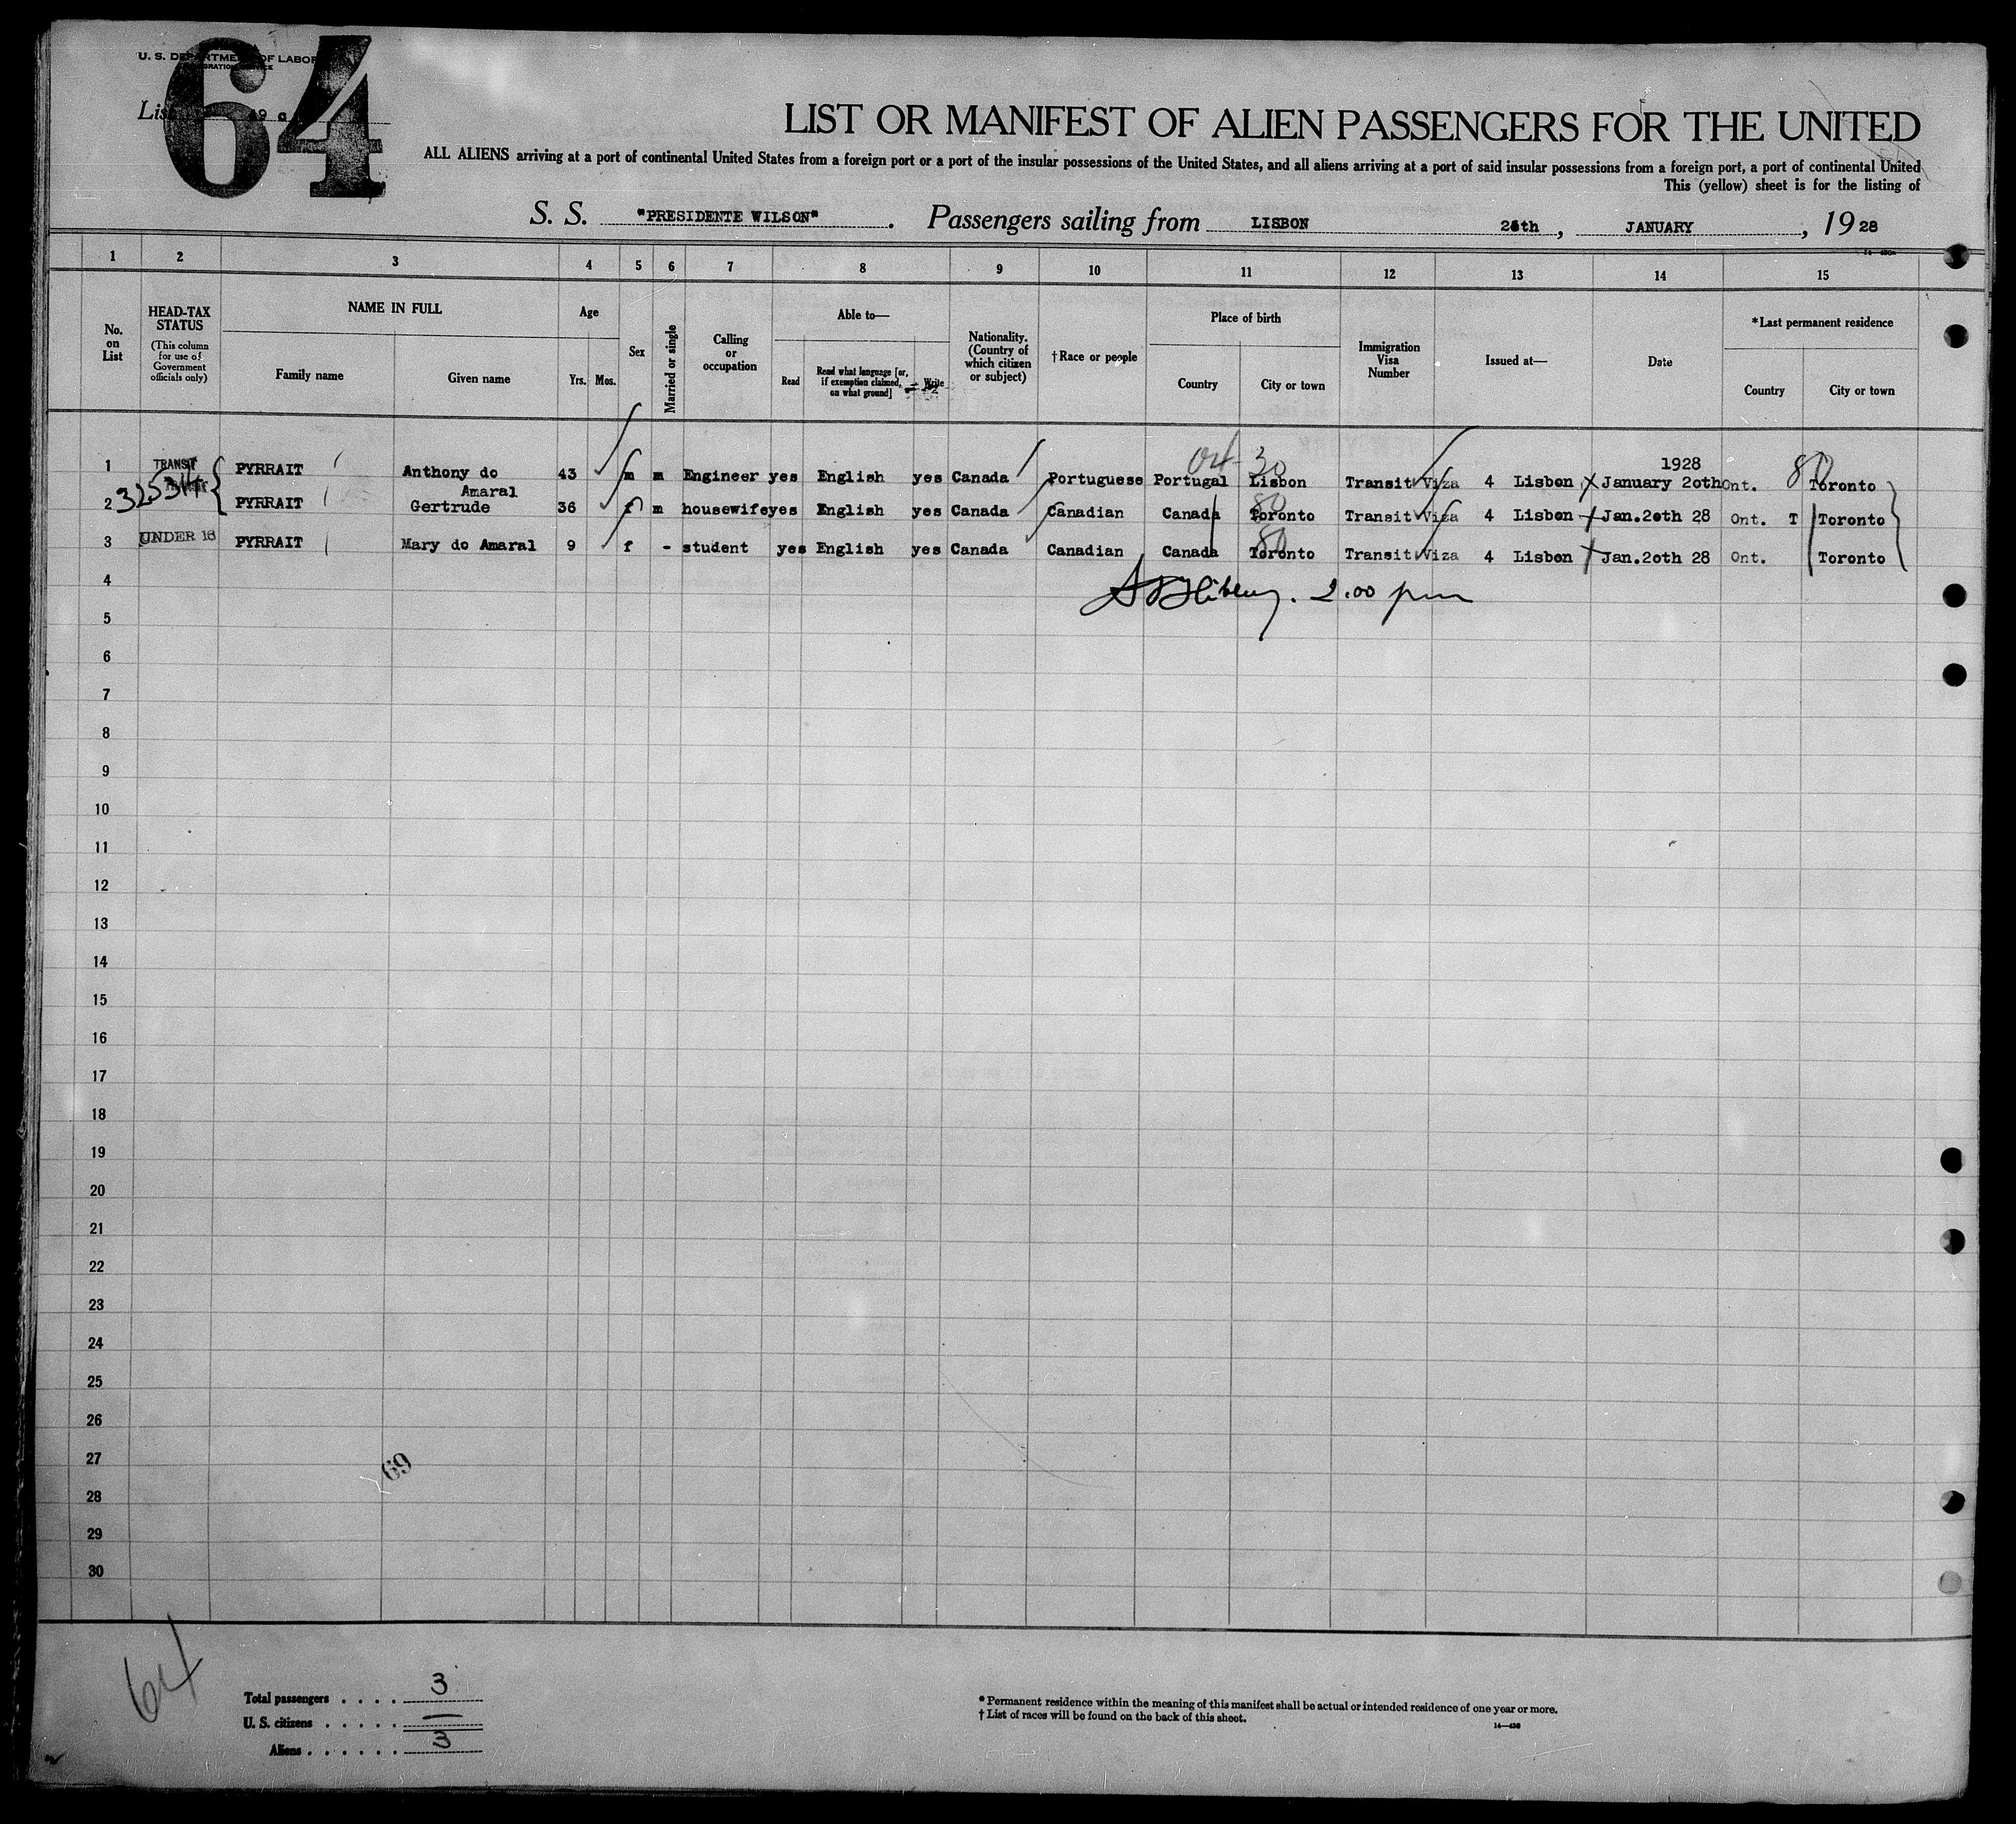 U. S. DEPARTMENT OF LABOR
64
LIST OR MANIFEST OF ALIEN PASSENGERS FOR THE UNITED
ALL ALIENS arriving at a port of continental United States from a foreign port or a port of the insular possessions of the United States, and all aliens arriving at a port of said insular possessions from a foreign port, a port of continental United
This (yellow) sheet is for the listing of
S. S. "PRESIDENTE WILSON". Passengers sailing from LISBON 26th, JANUARY, 1928
1 2 3 4 5 6 7 8 9 10 11 12 13 14 15
No. on List
HEAD-TAX STATUS
(This column for use of Government officials only)
NAME IN FULL
Family name Given name
Age
Yrs. Mos.
Sex
Married or single
Calling or occupation
Able to—
Read
Read what language [or, if exemption claimed, on what ground]
Write
Nationality. (Country of which citizen or subject)
†Race or people
Place of birth
Country City or town
Immigration Visa Number
Issued at—
Date
*Last permanent residence
Country City or town
04-30
1 TRANSIT PYRRAIT Anthony do Amaral 43 m m Engineer yes English yes Canada Portuguese Portugal Lisbon Transit Viza 4 Lisbon January 2oth 1928 Ont. 80 Toronto
32534
2 PYRRAIT Gertrude 36 f m housewife yes English yes Canada Canadian Canada 80 Toronto Transit Viza 4 Lisbon Jan.2oth 28 Ont. T Toronto
3 UNDER 16 PYRRAIT Mary do Amaral 9 f - student yes English yes Canada Canadian Canada 80 Toronto Transit Viza 4 Lisbon Jan.2oth 28 Ont. Toronto
4
2.00 pm
5
6
7
8
9
10
11
12
13
14
15
16
17
18
19
20
21
22
23
24
25
26
27
69
28
29
30
64
Total passengers . . . . 3
U. S. citizens . . . . . —
Aliens . . . . . . 3
* Permanent residence within the meaning of this manifest shall be actual or intended residence of one year or more.
† List of races will be found on the back of this sheet.